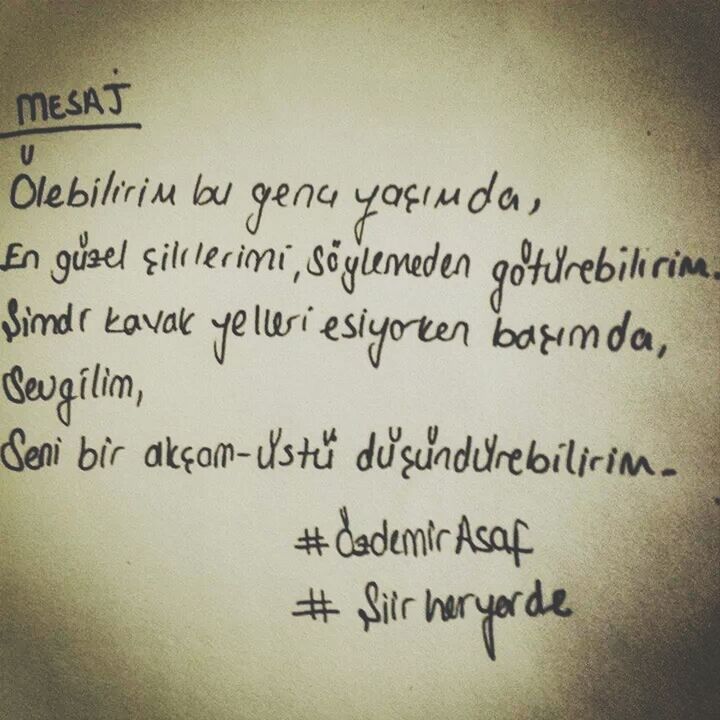 MESAJ
Ölebilirim bu genç yaşımda,
En güzel şiirlerimi, söylemeden götürebilirim.
Şimdi kavak yelleri esiyorken başımda,
Sevgilim,
Seni bir akşam-üstü düşündürebilirim.
#ÖzdemirAsaf
#Şiirheryerde